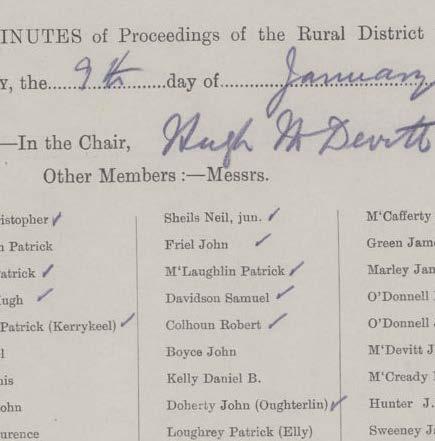 INUTES of Proceedings of the Rural District
Y, the 9th day of January
—In the Chair, Hugh McDevitt
Other Members :—Messrs.
ristopher ✓ Sheils Neil, jun. ✓ M'Cafferty
n Patrick Friel John ✓ Green Jame
atrick ✓ M'Laughlin Patrick ✓ Marley Jam
ugh ✓ Davidson Samuel ✓ O'Donnell
Patrick (Kerrykeel) ✓ Colhoun Robert ✓ O'Donnell J
l Boyce John M'Devitt J
nis Kelly Daniel B. M'Cready
ohn Doherty John (Oughterlin) ✓ Hunter J.
urence Loughrey Patrick (Elly) Sweeney Ja